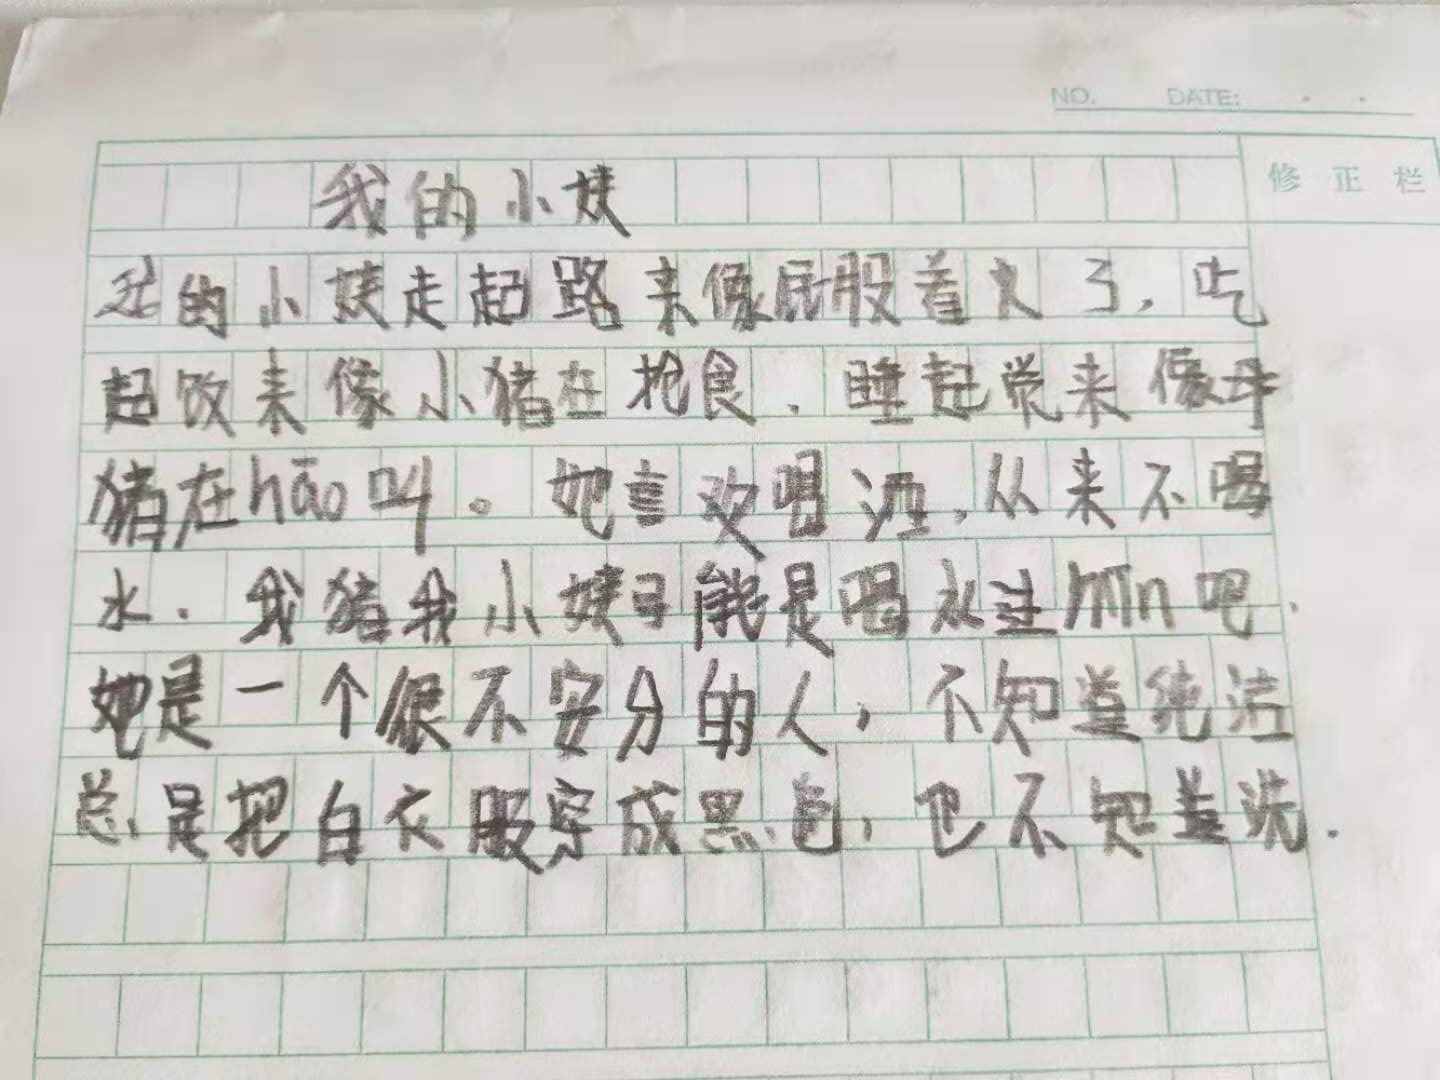 NO. DATE:
修正栏
我的小姨
我的小姨走起路来像屁股着火了，吃
起饭来像小猪在抢食．睡起觉来像母
猪在hāo叫。她言欢喝酒，从来不喝
水．我猪我小姨可能是喝水过mǐn吧．
她是一个很不安分的人，不知道纯洁
总是把白衣服穿成黑色，也不知道洗．